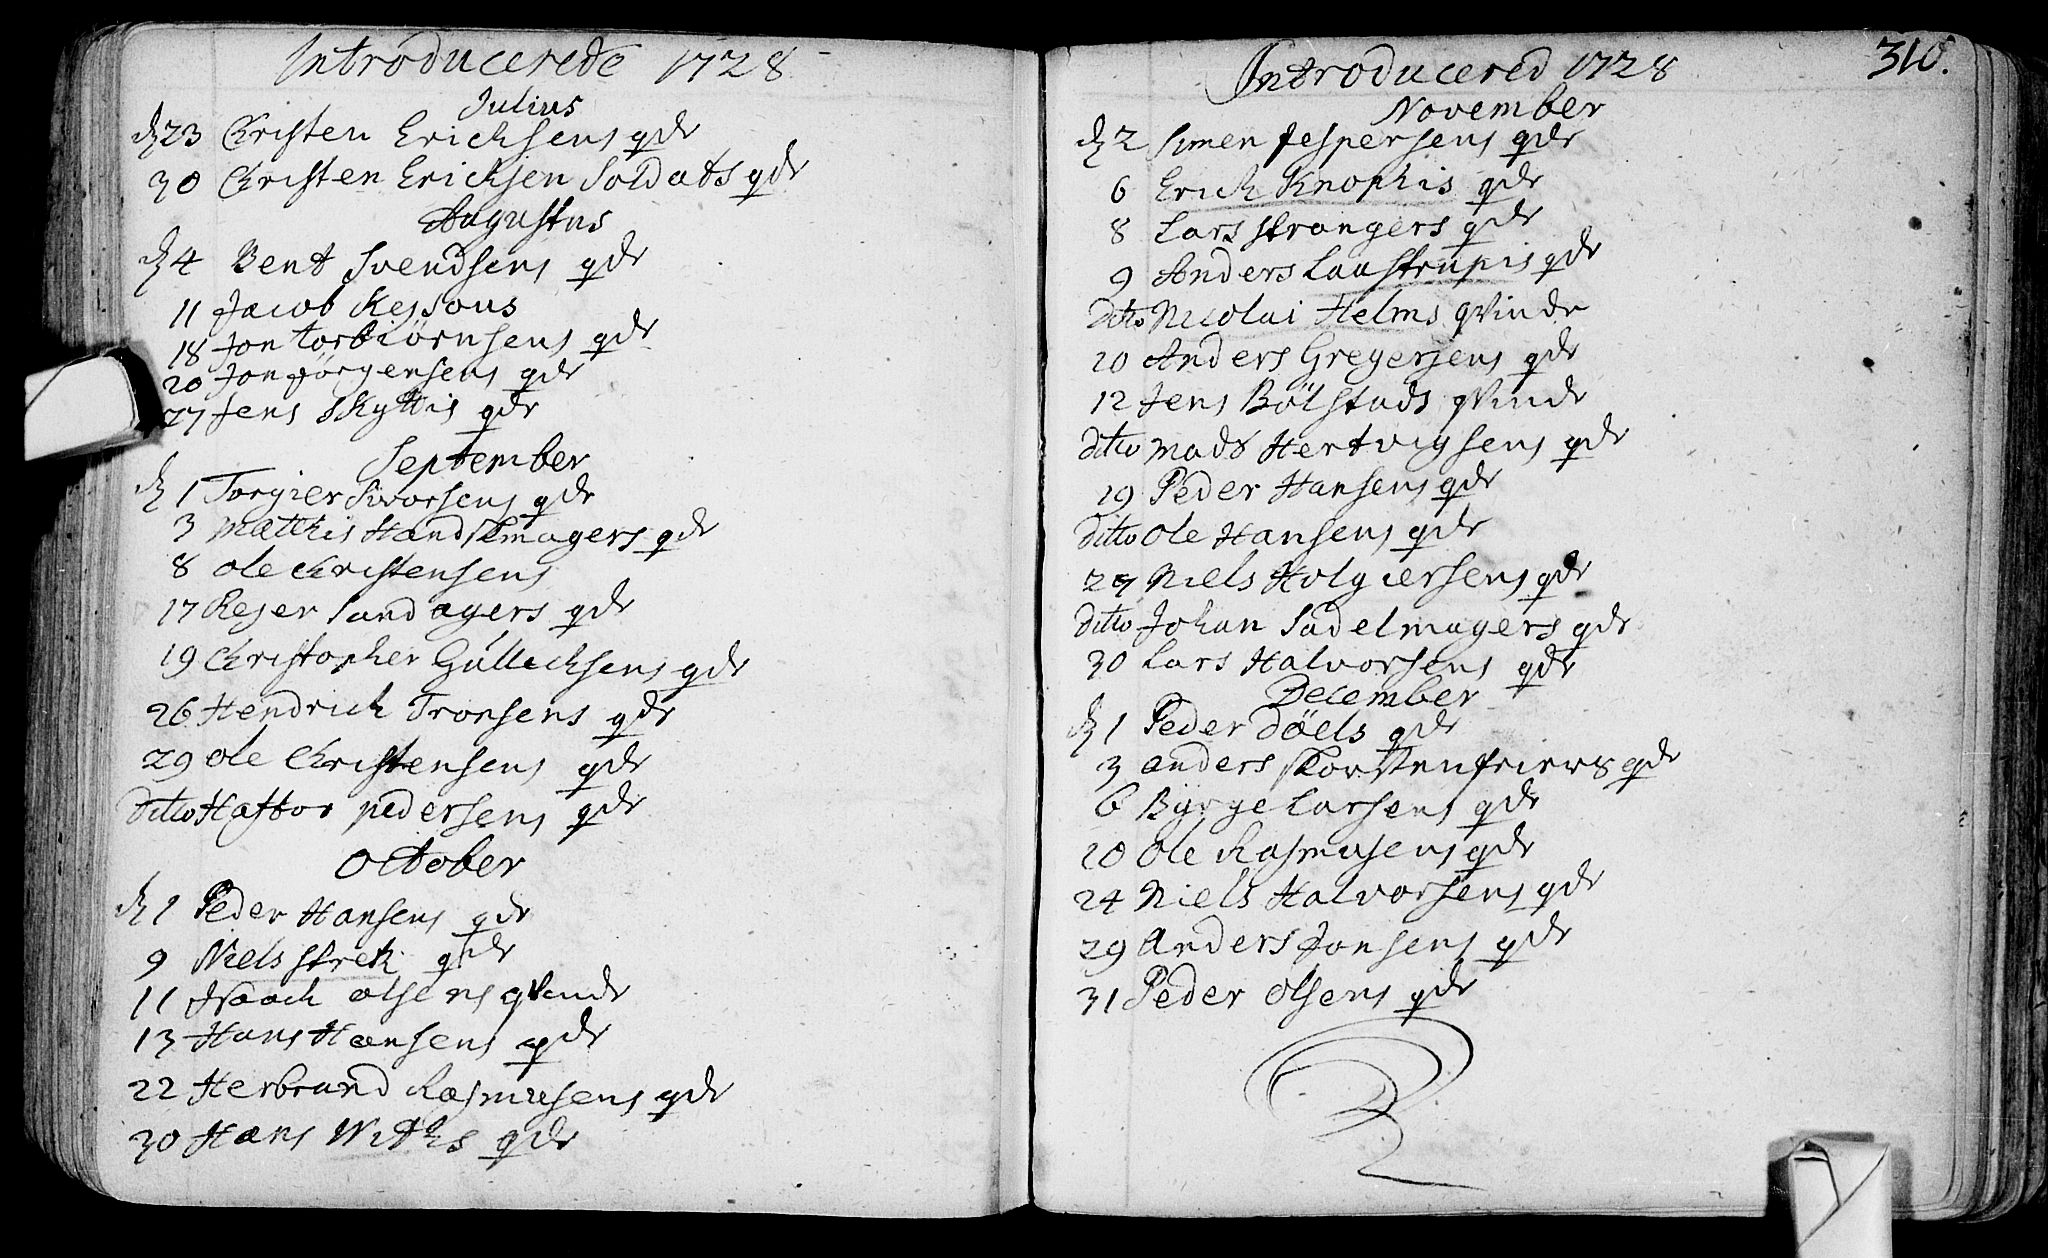 Introducerede 1728
Julius
d 23 Christen Erichsens qdr
30 Christen Erichsen Soldats qdr
Augustus
d 4 Bent Svendsens qdr
11 Jacob Kessous
18 Jon Torbiørnsens qdr
20 Jon Jørgensens qdr
27 Jens Skyttis qdr
September
d 1 Torgier Sivorsens qdr
3 Matthis Handskmagers qdr
8 Ole Christensens
17 Rejer Sandagers qdr
19 Christopher Gullichsens qdr
26 Hendrich Tronsens qdr
29 Ole Christensens qdr
Ditto Haftor pedersens qdr
October
d 1 Peder Hansens qdr
9 Niels Strek qdr
11 Isaach olsens qvinde
13 Hans Hansens qdr
22 Herbrand Rasmusens qdr
30 Hans Withs qdr
Introducered 1728
310.
November
d 2 Simen Jespersens qdr
6 Erich Knophis qdr
8 Lars strangers qdr
9 Anders Laustrupis qdr
Ditto Nicolai Helms qvinde
10 Anders Gregersens qdr
12 Jens Bölstads qvinde
Ditto Mads Hertvigsens qdr
19 Peder Hansens qdr
Ditto Ole Hansens qdr
27 Niels Holgiersens qdr
Ditto Johan Sadelmagers qdr
30 Lars Halvorsens qdr
December
d 1 Peder Döels qdr
3 anders skorstenfeiers qdr
6 Byrge Larsens qdr
10 Ole Rasmusens qdr
24 Niels Halvorsens qdr
29 Anders Jonsens qdr
31 Peder Olsens qdr